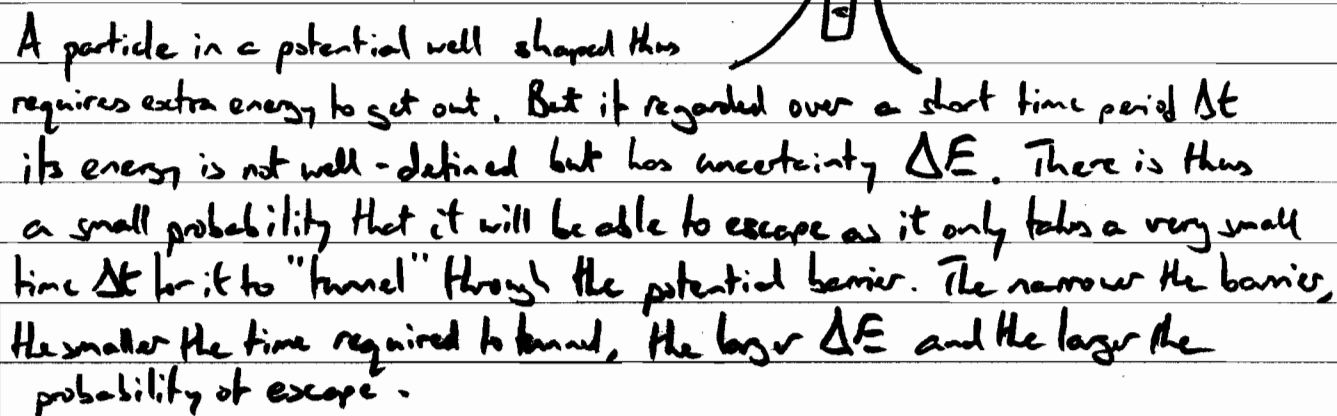 A particle in a potential well shaped thus
requires extra energy to get out. But if regarded over a short time period Δt
its energy is not well-defined but has uncertainty ΔE. There is thus
a small probability that it will be able to escape as it only takes a very small
time Δt for it to "tunnel" through the potential barrier. The narrower the barrier,
the smaller the time required to tunnel, the larger ΔE and the larger the
probability of escape.